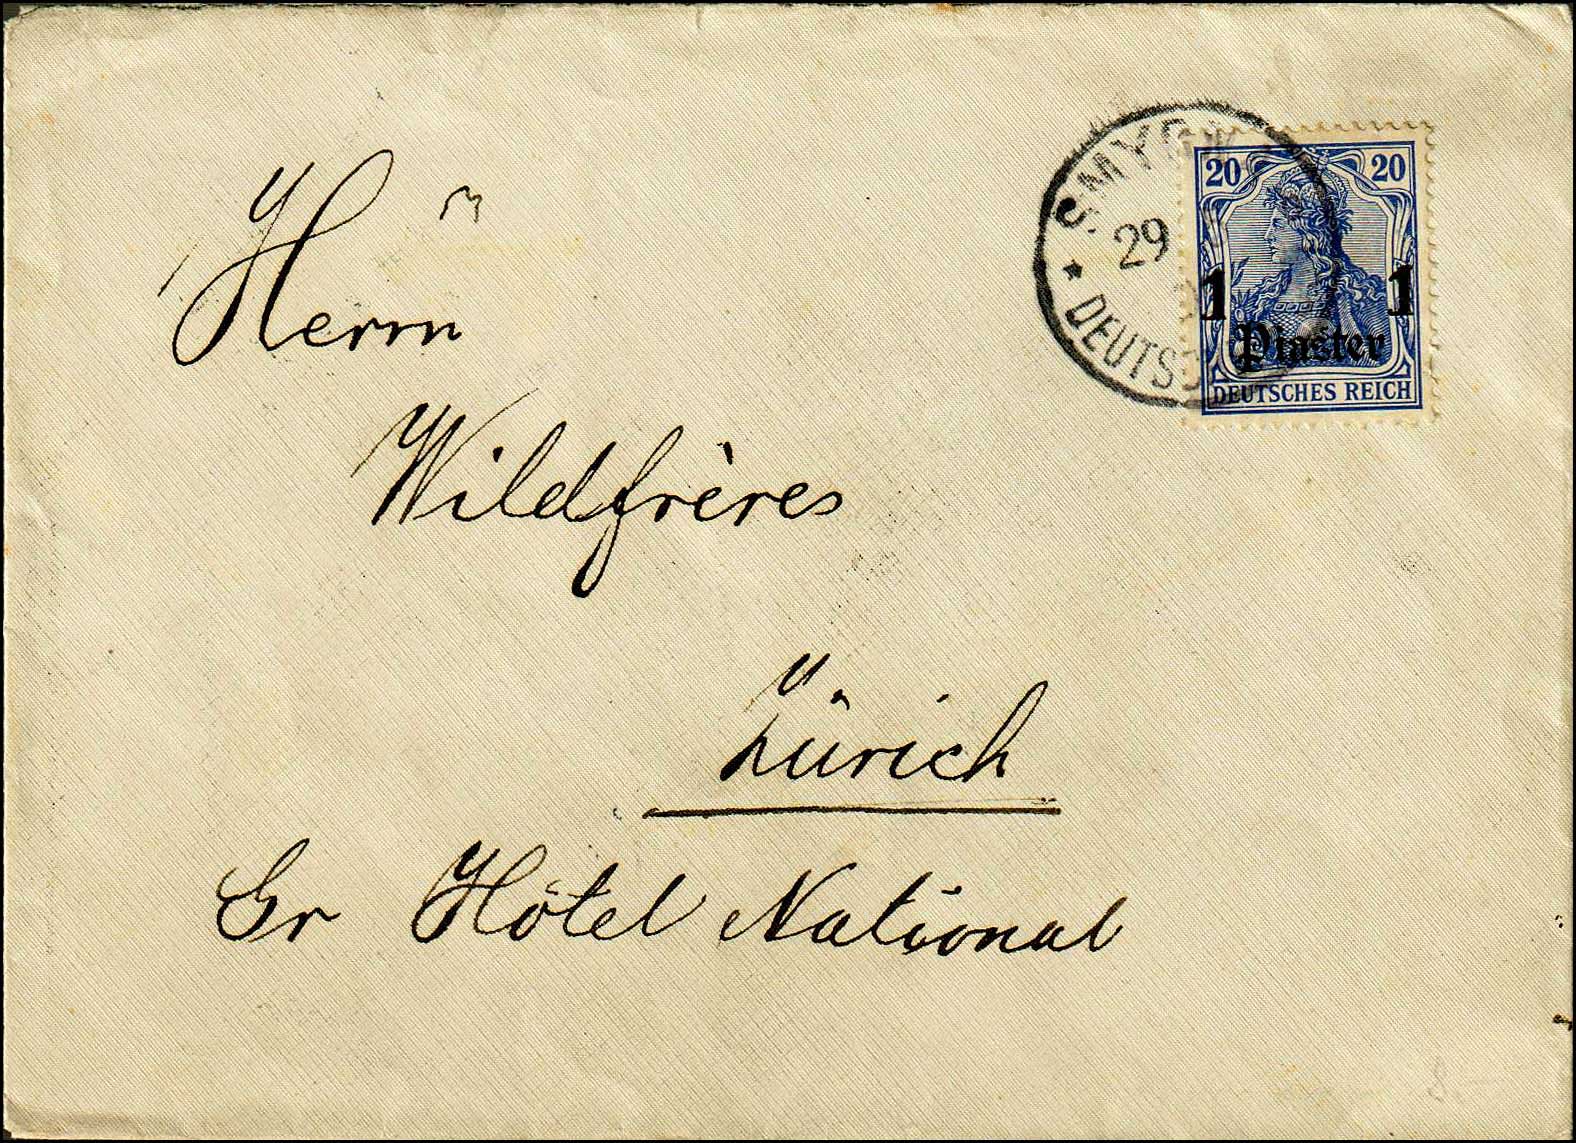 SMYRN
29
* DEUTSC
20 20
1 1
Piaster
DEUTSCHES REICH
Herrn
Wildfrères
Zürich
Gr Hôtel National
8